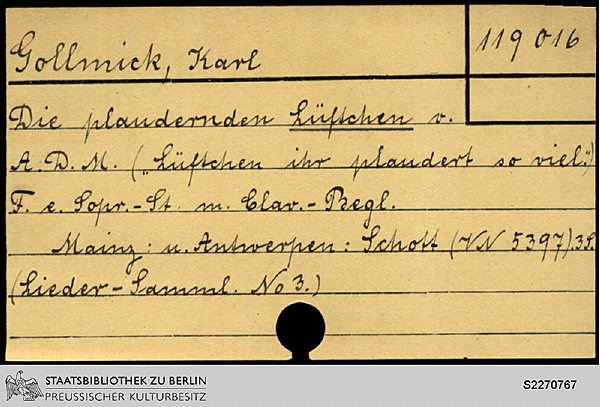 Gollmick, Karl
119 016
Die plaudernden Lüftchen v.
A. D. M. („Lüftchen ihr plaudert so viel.")
F. e. Sopr.-St. m. Clav.-Begl.
Mainz: u. Antwerpen: Schott (VN 5397). 3 S.
(Lieder-Samml. No 3.)
STAATSBIBLIOTHEK ZU BERLIN
PREUSSISCHER KULTURBESITZ
S2270767